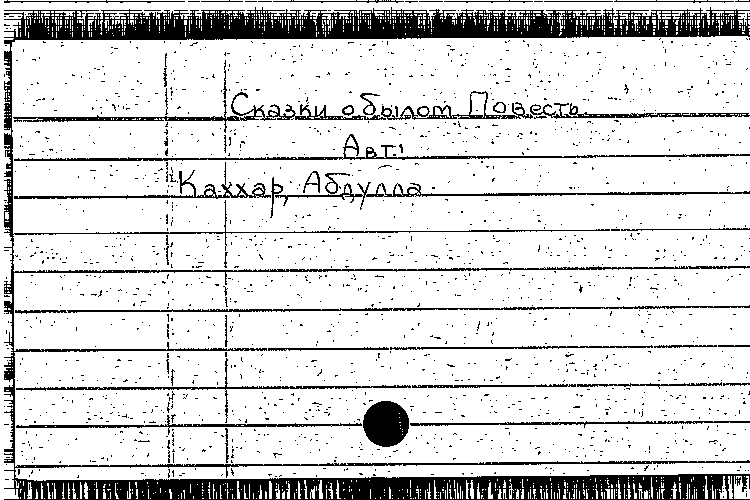 Сказки о былом Повесть.
Авт:
Каххар, Абдулла.